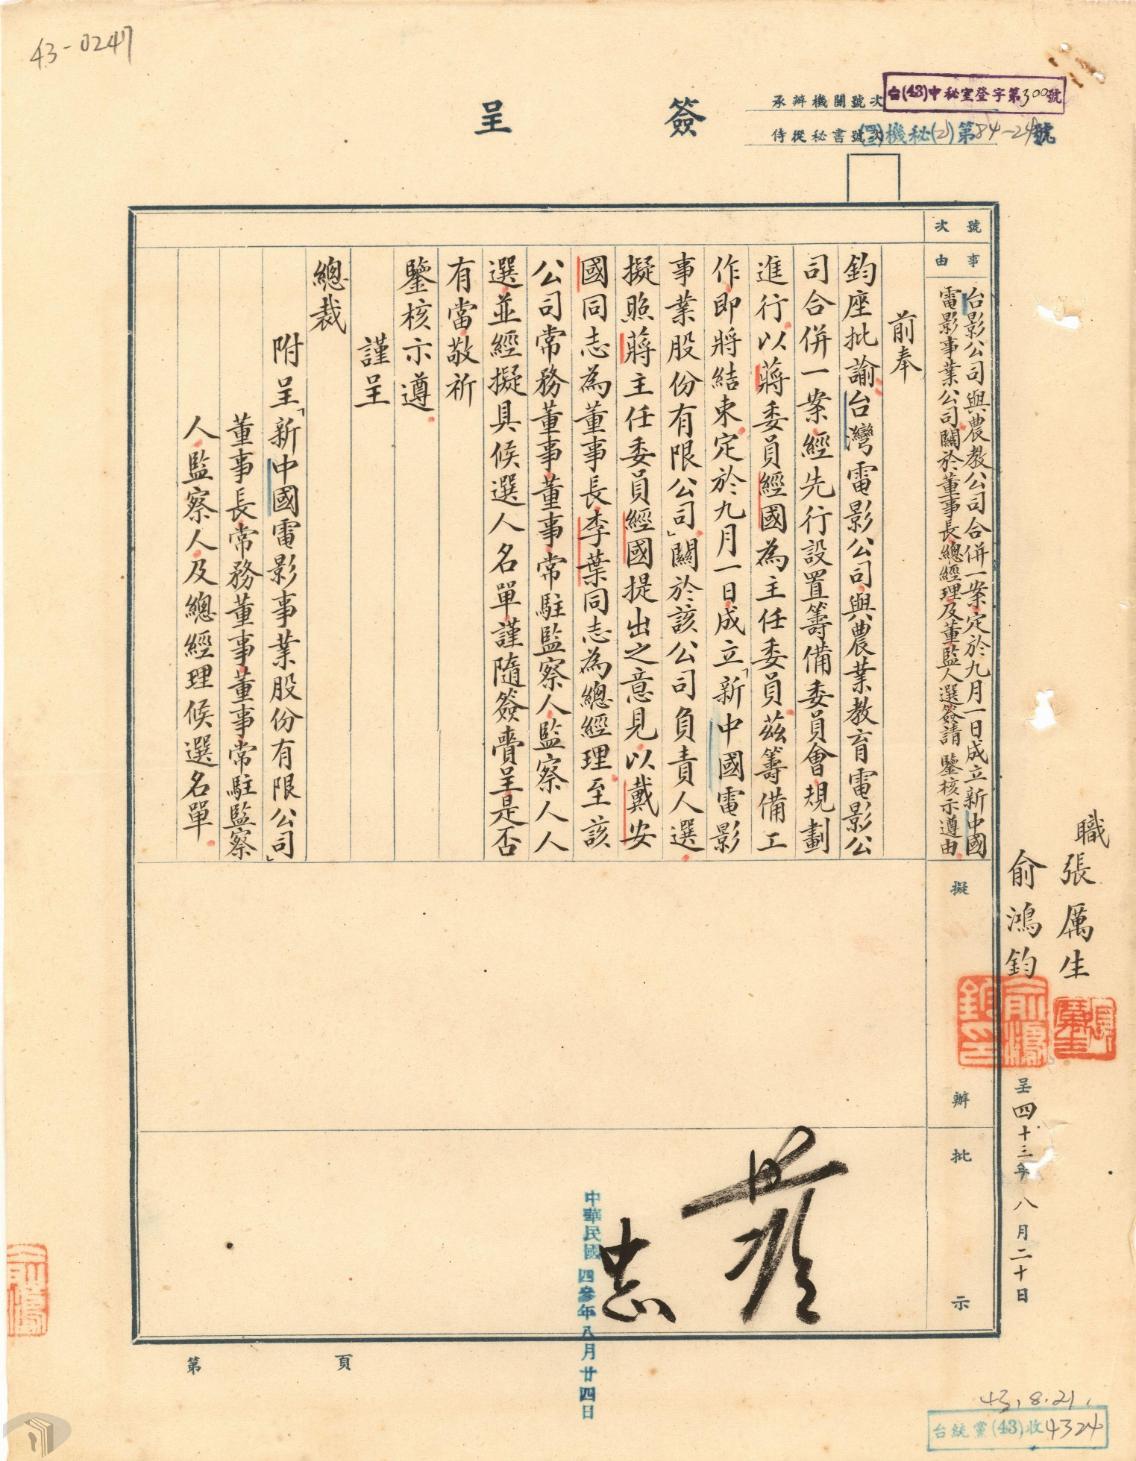 43-0247
簽呈
承辦機關號次
台(43)中秘室登字第300號
侍從秘書號次
機秘(2)第84-24號
號次
事由
台影公司與農教公司合併一案定於九月一日成立新中國
電影事業公司關於董事長總經理及董監人選簽請 鑒核示遵由
前奉
鈞座批諭台灣電影公司與農業教育電影公
司合併一案經先行設置籌備委員會規劃
進行以蔣委員經國為主任委員茲籌備工
作即將結束定於九月一日成立「新中國電影
事業股份有限公司」關於該公司負責人選
擬照蔣主任委員經國提出之意見以戴安
國同志為董事長李葉同志為總經理至該
公司常務董事董事常駐監察人監察人人
選並經擬具候選人名單謹隨簽賫呈是否
有當敬祈
鑒核示遵
謹呈
總裁
附呈「新中國電影事業股份有限公司」
董事長常務董事董事常駐監察
人監察人及總經理候選名單
職張厲生
俞鴻鈞
呈四十三年八月二十日
擬辦
批示
中華民國四參年八月廿四日
第 頁
43.8.21.
台統黨(43)收4324